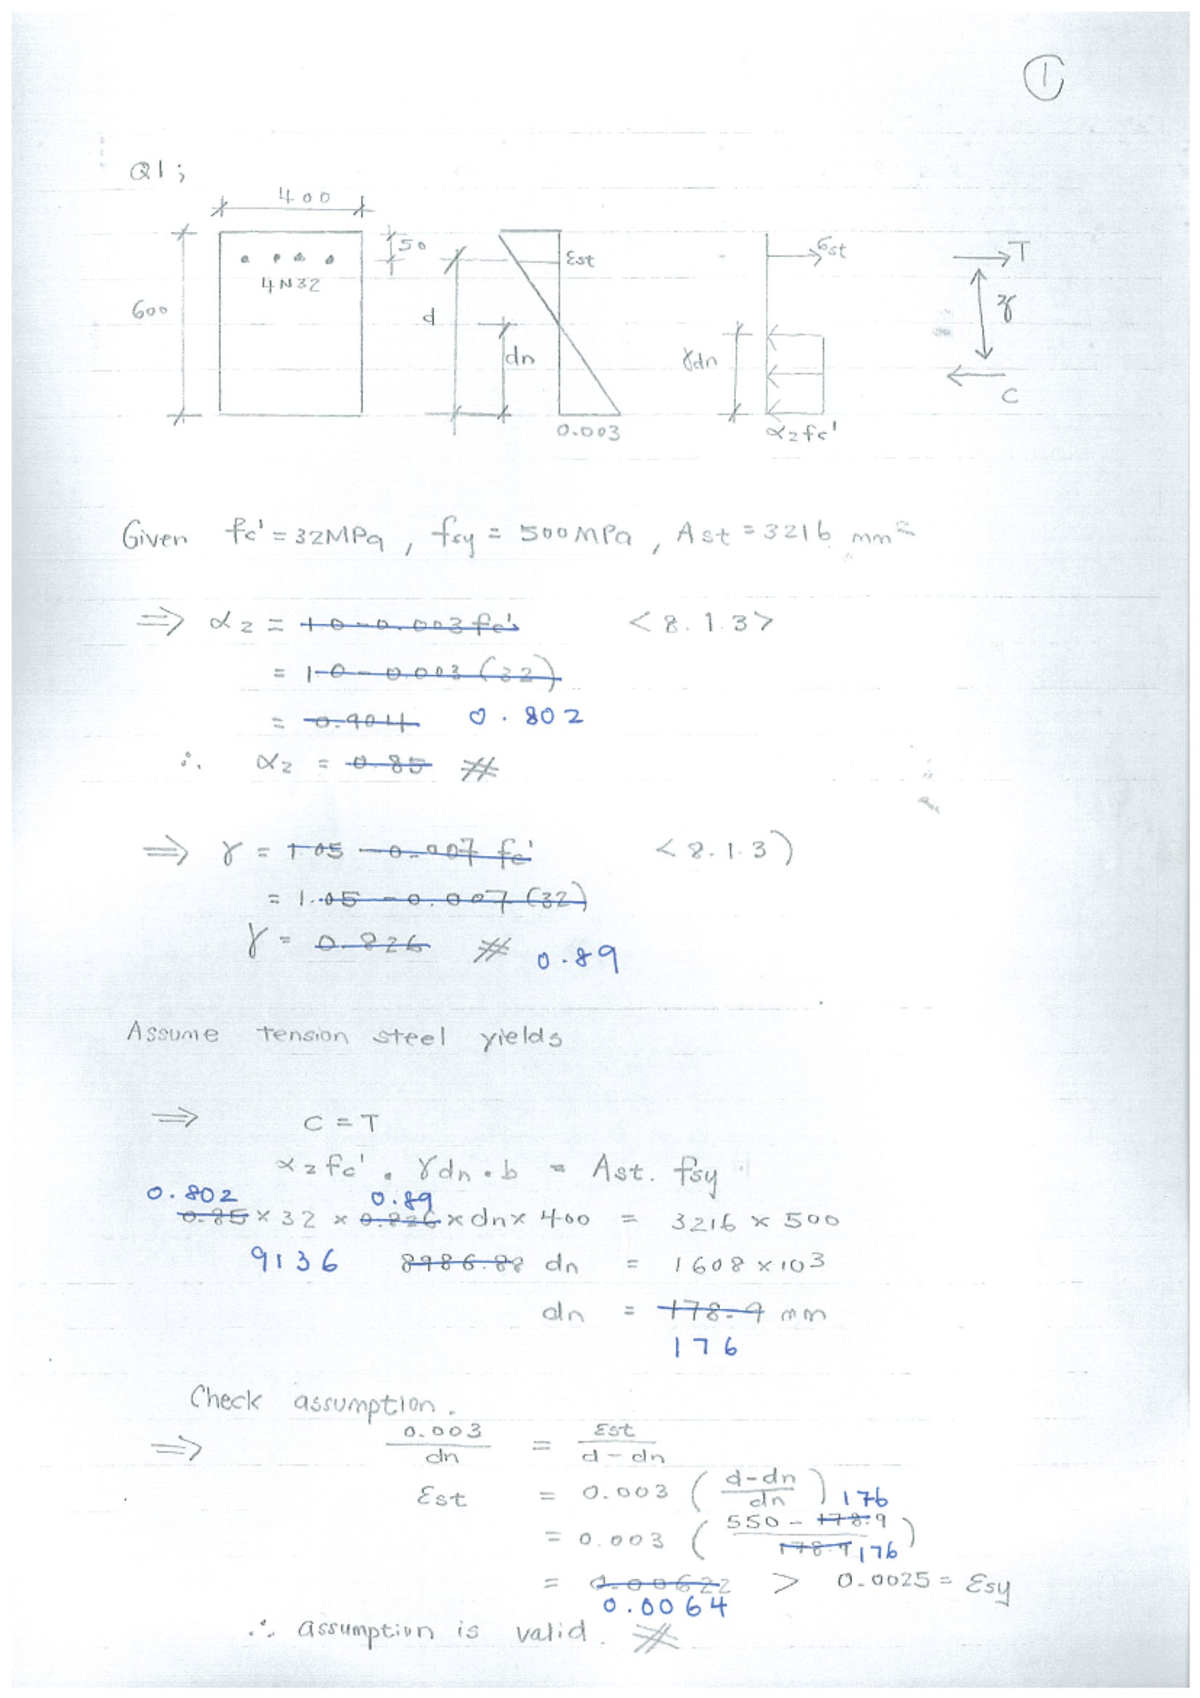 1
Q1;
400
50
4N32
600
d
dn
εst
0.003
γdn
σst
α2fc'
T
C
Given fc' = 32MPa , fsy = 500MPa , Ast = 3216 mm²
⇒ α2 = 1.0 - 0.003 fc' <8.1.3>
= 1.0 - 0.003 (32)
= 0.904 0.802
∴ α2 = 0.85 #
⇒ γ = 1.05 - 0.007 fc' <8.1.3)
= 1.05 - 0.007 (32)
γ = 0.826 # 0.89
Assume tension steel yields
⇒ C = T
α2fc' . γdn . b = Ast. fsy
0.802 0.89
0.85 × 32 × 0.826 × dn × 400 = 3216 × 500
9136 8986.88 dn = 1608 × 103
dn = 178.9 mm
176
Check assumption.
⇒ 0.003 / dn = εst / d - dn
εst = 0.003 ( d-dn / dn ) 176
= 0.003 ( 550 - 178.9 / 178.9 176 )
= 0.00622 > 0.0025 = εsy
0.0064
∴ assumption is valid. #